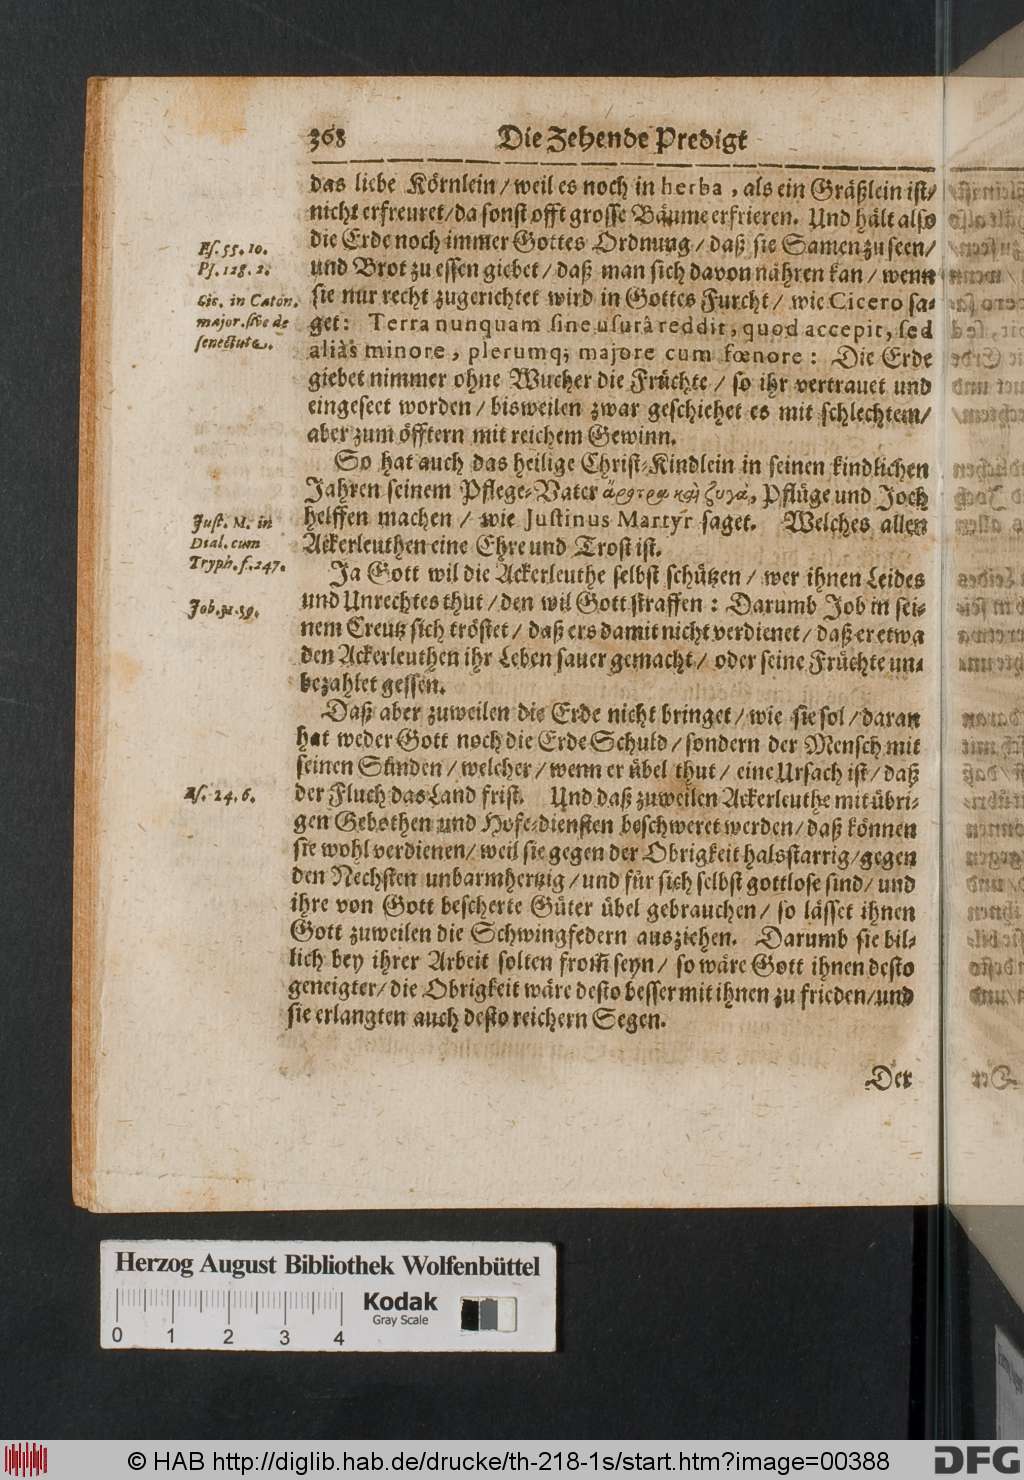 368 Die Zehende Predigt
das liebe Körnlein/ weil es noch in herba, als ein Gräßlein ist/
nicht erfreuret/ da sonst offt grosse Bäume erfrieren. Und hält also
die Erde noch immer Gottes Ordnung/ daß sie Samen zu seen/
und Brot zu essen giebet/ daß man sich davon nähren kan/ wenn
sie nur recht zugerichtet wird in Gottes Furcht/ wie Cicero sa-
get: Terra nunquam sine usurâ reddit, quod accepit, sed
aliàs minore, plerumq; majore cum fœnore: Die Erde
giebet nimmer ohne Wucher die Früchte/ so ihr vertrauet und
eingeseet worden/ bisweilen zwar geschiehet es mit schlechtem/
aber zum öfftern mit reichem Gewinn.
So hat auch das heilige Christ-Kindlein in seinen kindlichen
Jahren seinem Pflege-Vater ἄροτρα καὶ ζυγά, Pflüge und Joch
helffen machen/ wie Justinus Martyr saget. Welches allen
Ackerleuthen eine Ehre und Trost ist.
Ja Gott wil die Ackerleuthe selbst schützen/ wer ihnen Leides
und Unrechtes thut/ den wil Gott straffen: Darumb Job in sei-
nem Creutz sich tröstet/ daß ers damit nicht verdienet/ daß er etwa
den Ackerleuthen ihr Leben sauer gemacht/ oder seine Früchte un-
bezahlet gessen.
Daß aber zuweilen die Erde nicht bringet/ wie sie sol/ daran
hat weder Gott noch die Erde Schuld/ sondern der Mensch mit
seinen Sünden/ welcher/ wenn er übel thut/ eine Ursach ist/ daß
der Fluch das Land frist. Und daß zuweilen Ackerleuthe mit übri-
gen Gebothen und Hofe-diensten beschweret werden/ daß können
sie wohl verdienen/ weil sie gegen der Obrigkeit halsstarrig/ gegen
den Nechsten unbarmhertzig/ und für sich selbst gottlose sind/ und
ihre von Gott bescherte Güter übel gebrauchen/ so lässet ihnen
Gott zuweilen die Schwingfedern ausziehen. Darumb sie bil-
lich bey ihrer Arbeit solten from̃ seyn/ so wäre Gott ihnen desto
geneigter/ die Obrigkeit wäre desto besser mit ihnen zu frieden/ und
sie erlangten auch desto reichern Segen.
Der
Es. 55. 10.
Ps. 128. 2.
Cic. in Caton.
major. sive de
senectute.
Just. M. in
Dial. cum
Tryph. f. 247.
Job. 31. 39.
Es. 24. 6.
Herzog August Bibliothek Wolfenbüttel
Kodak
Gray Scale
0 1 2 3 4
© HAB http://diglib.hab.de/drucke/th-218-1s/start.htm?image=00388
DFG